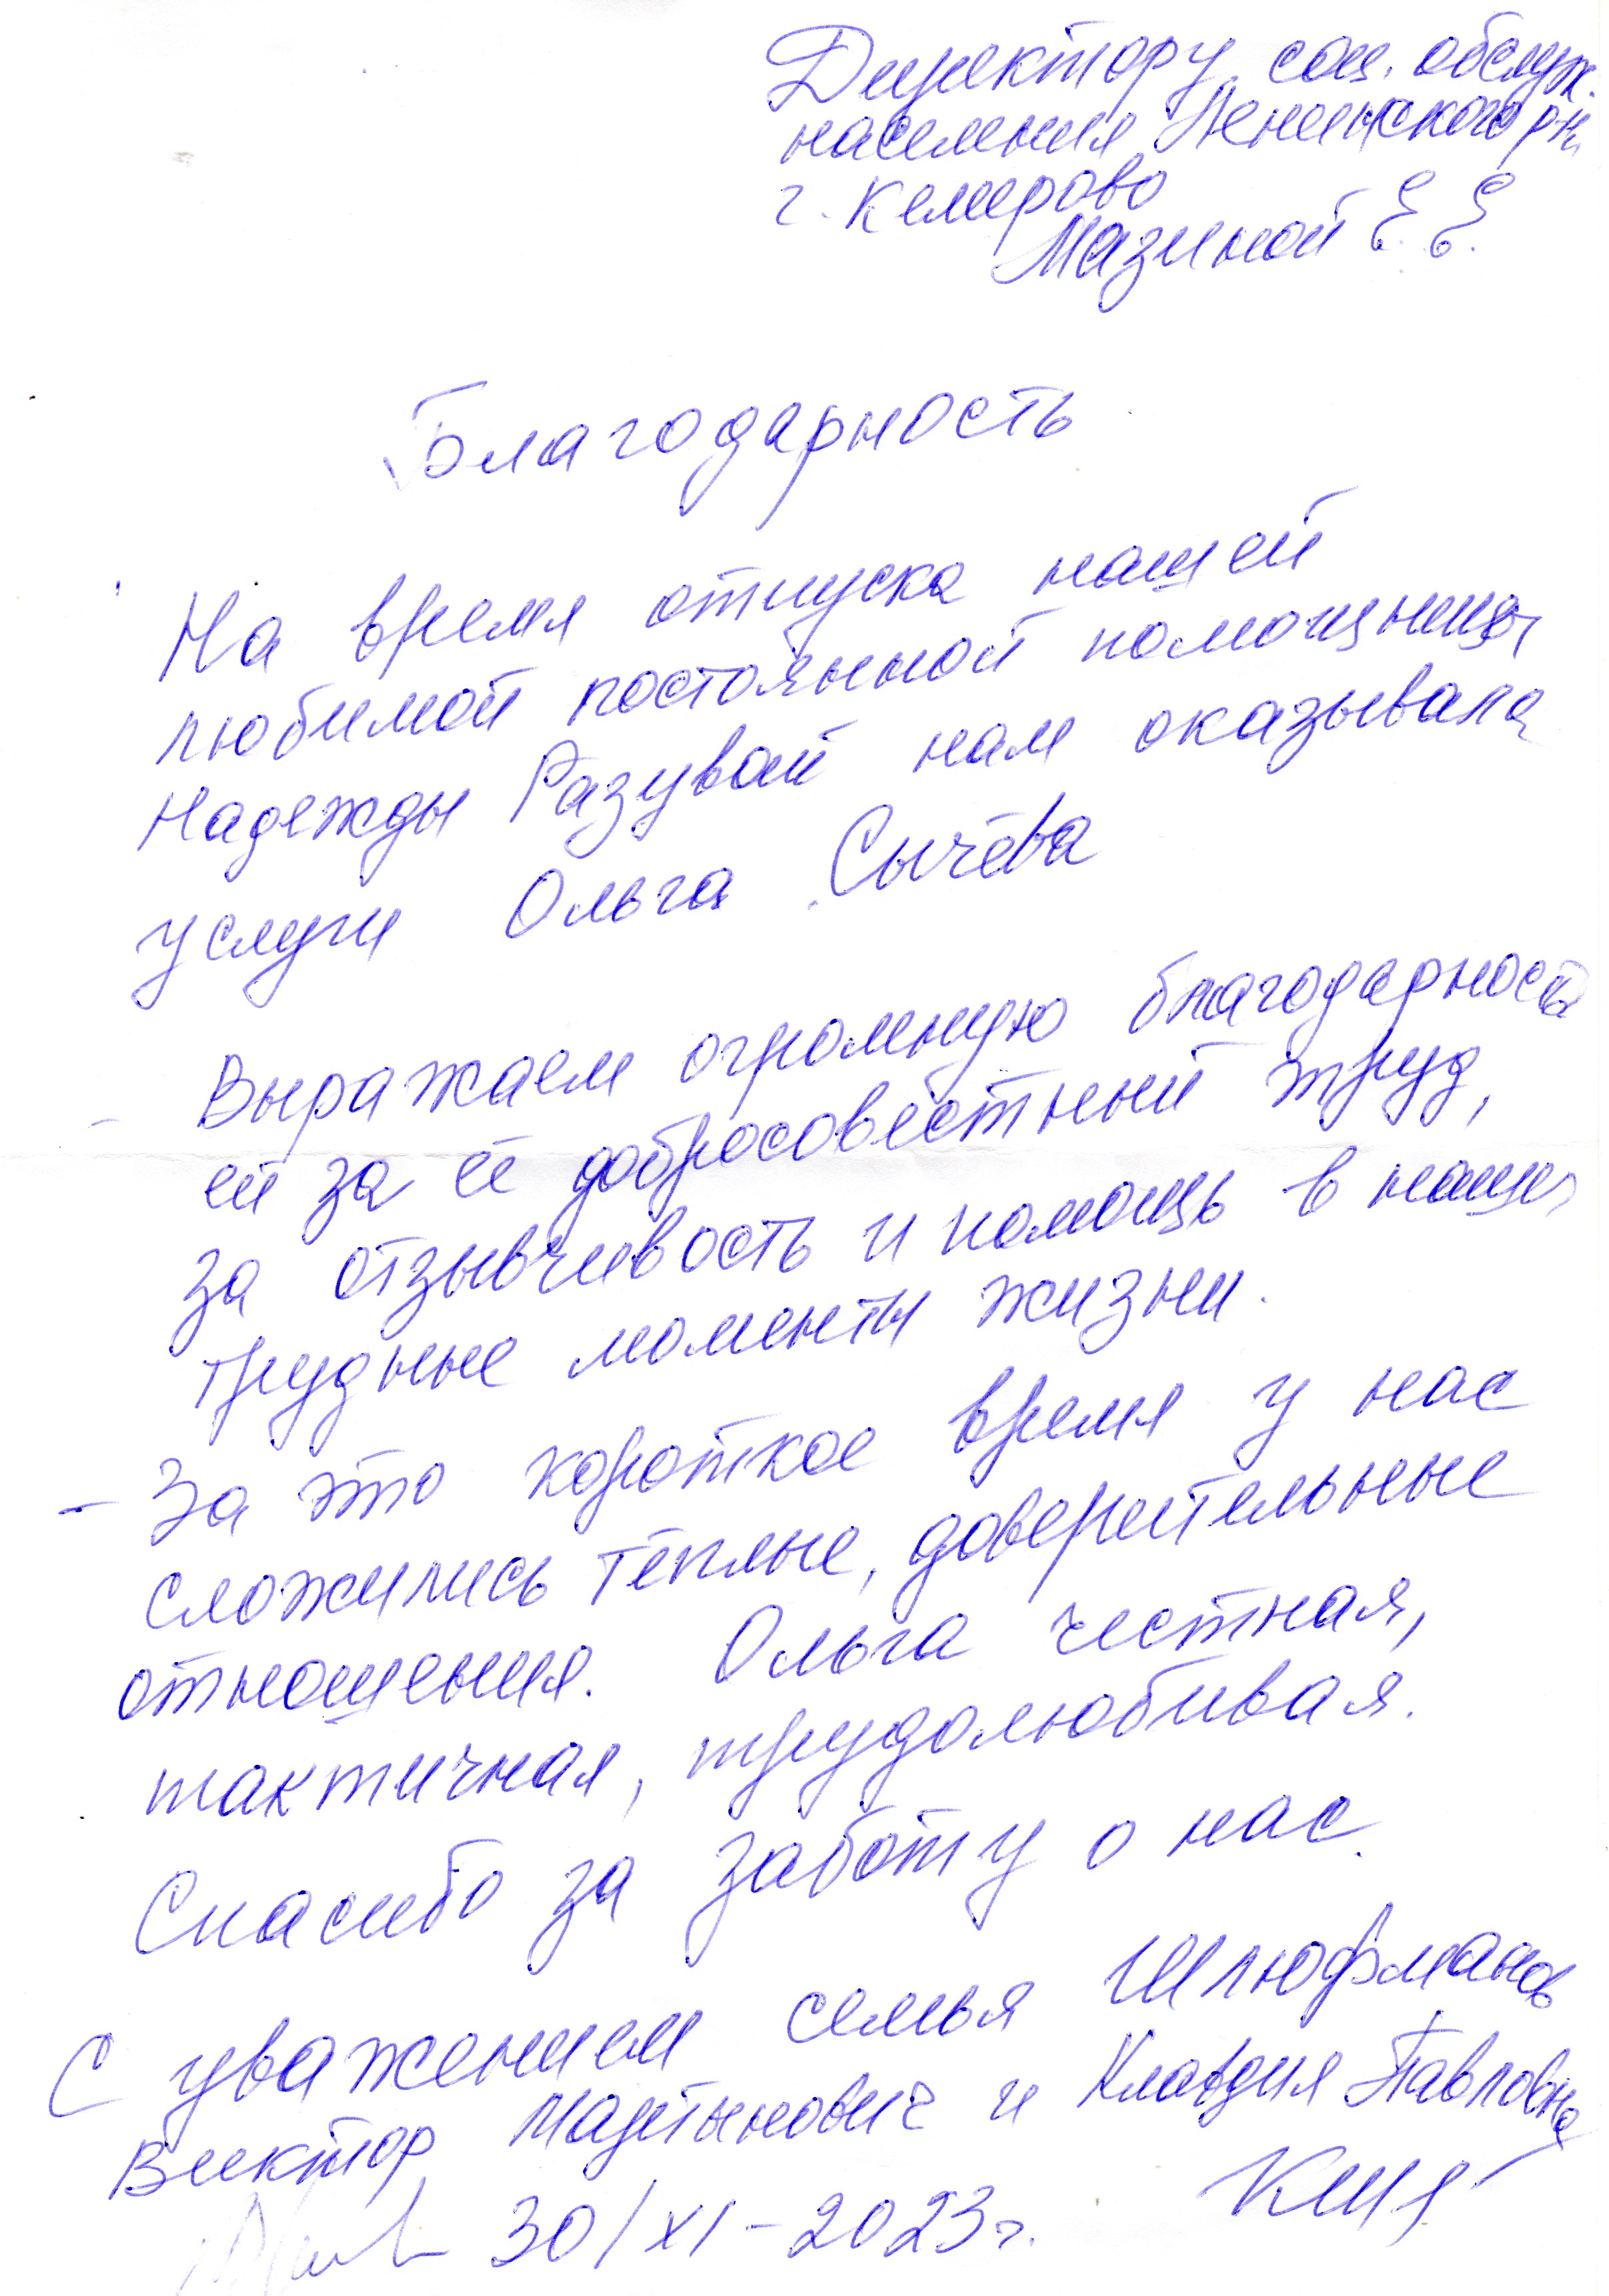 Директору соц. обслуж.
населения Ленинского р-н.
г. Кемерово
Мазиной Е. Е.
Благодарность
На время отпуска нашей
любимой постоянной помощницы
Надежды Разувай нам оказывала
услуги Ольга Сычёва
Выражаем огромную благодарность
ей за её добросовестный труд,
за отзывчивость и помощь в наши
трудные моменты жизни.
- За это короткое время у нас
сложились тёплые, доверительные
отношения. Ольга честная,
тактичная, трудолюбивая.
Спасибо за заботу о нас.
С уважением семья Шлюфманов
Виктор Мартынович и Клавдия Павловна
30/XI-2023г.